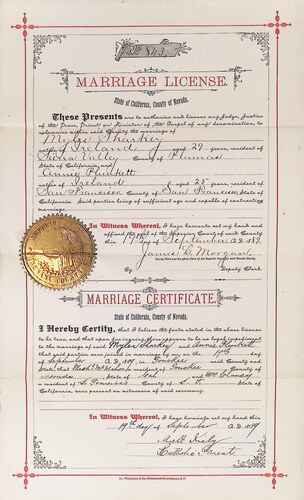 No. 843
MARRIAGE LICENSE.
State of California, County of Nevada.
These Presents are to authorize and license any Judge, Justice
of the Peace, Priest or Minister of the Gospel of any denomination, to
solemnize within said County the marriage of
Myles Sharkey
native of Ireland of aged 29 years, resident of
Sierra Valley County of Plumas
State of California, and
Annie Plunkett
native of Ireland of aged 25 years, resident of
San Francisco County of San Francisco, State of
California. Said parties being of sufficient age and capable of contracting
marriage.
In Witness Whereof, I have hereunto set my hand and
affixed the seal of the County Court of said County
this 19th day of September A.D. 1891.
James G. Morgan
By Deputy Clerk
MARRIAGE CERTIFICATE.
State of California, County of Nevada.
I Hereby Certify, that I believe the facts stated in the above license
to be true, and that upon due inquiry there appears to be no legal impediment
to the marriage of said Myles Sharkey and Annie Plunkett
that said parties were joined in marriage by me on the 19th
of September A.D. 1891, in Truckee County and
State; that a resident of Truckee County of
Nevada State of Cal. and
a resident of S. Francisco County of S. F. State of
California, were present as witnesses of said ceremony.
In Witness Whereof, I have hereunto set my hand this
19th day of September A.D. 1891
Catholic Priest